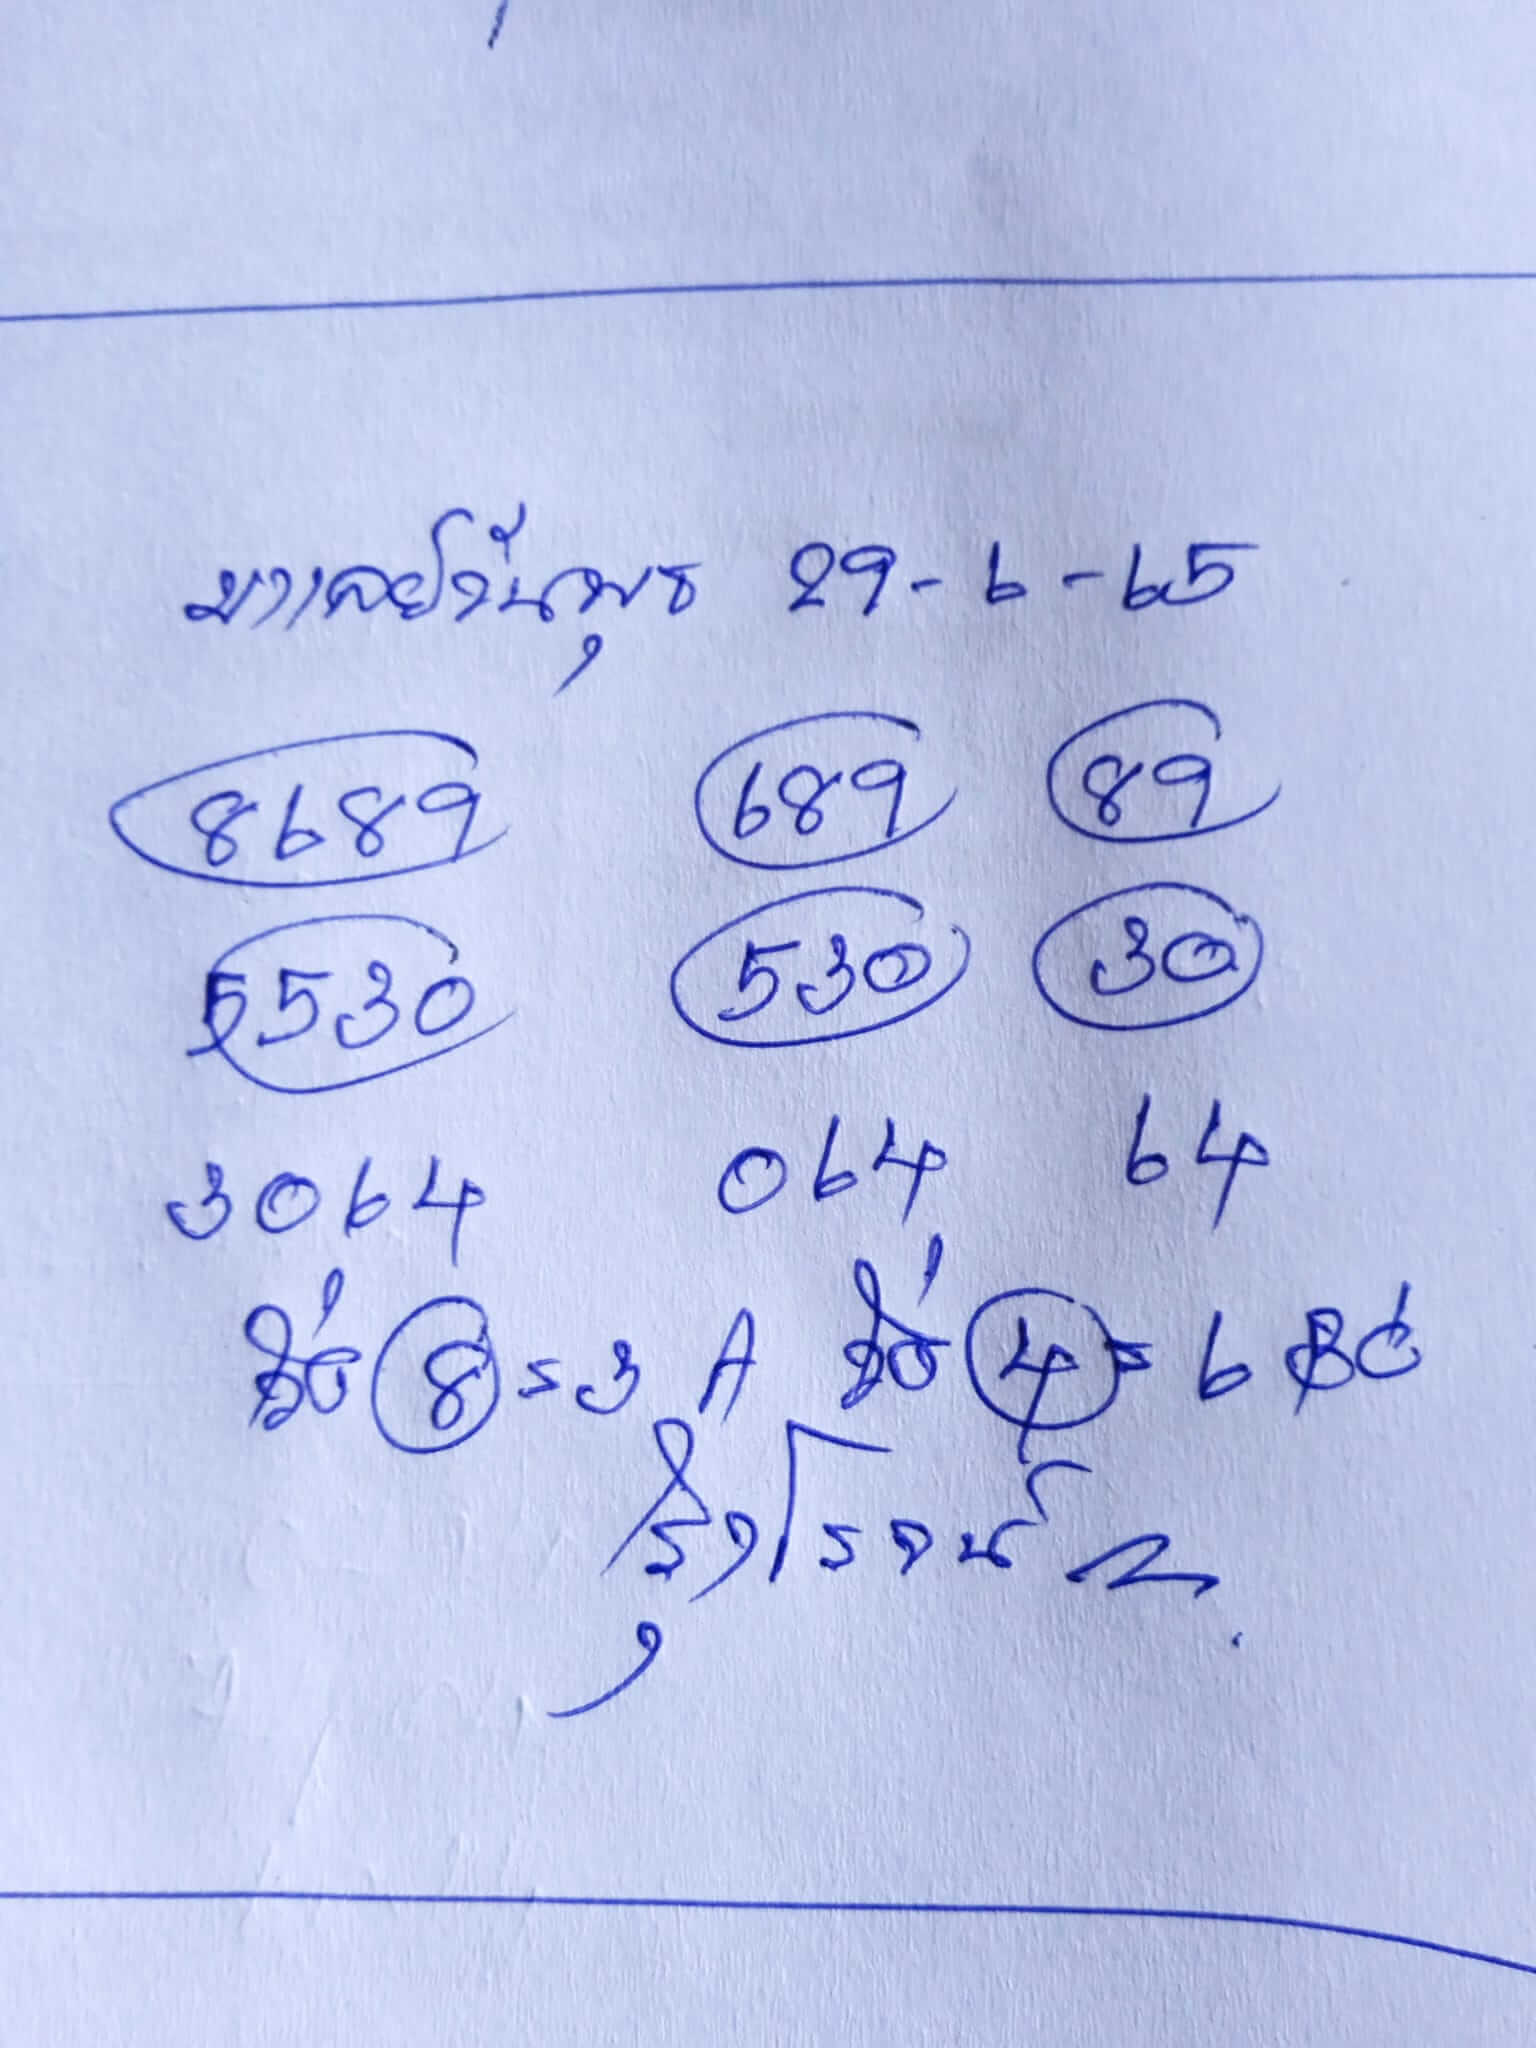 มาเลย์วันพุธ 29-6-65
8689 689 89
5530 530 30
3064 064 64
8 = 3 A 4 = 6
รุ่งโรจน์